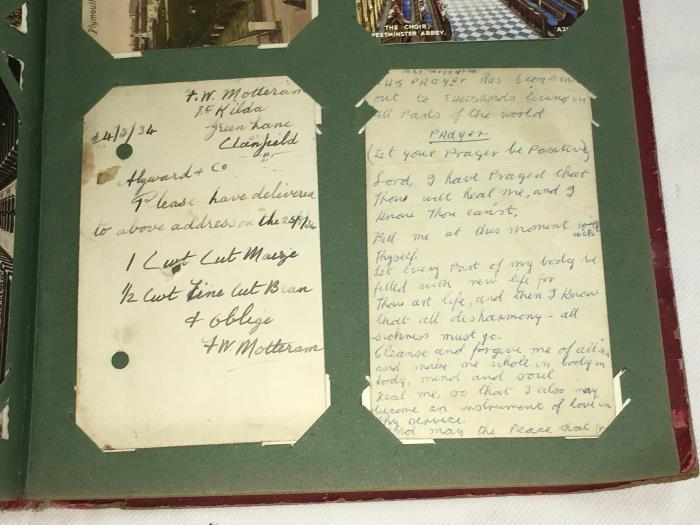 Plymouth
THE CHOIR,
WESTMINSTER ABBEY.
F.W. Motteram
St Kilda
Green Lane
Clanfield
24/8/34
Hayward & Co
Please have delivered
to above address on the 25/8/34
1 Cwt Cut Maize
1/2 Cwt Fine Cut Bran
& oblige
FW Motteram
This PRAYER has been sent
out to Thousands living in
all Parts of the world
PRAYER.
(Let your Prayer be Positive)
Lord, I have Prayed that
Thou will heal me, and I
know Thou can'st.
Fill me at this moment with
Thyself.
Let every Part of my body be
filled with new life for
Thou art life, and then I know
that all disharmony - all
sickness must go.
Cleanse and forgive me of all sin
and make me whole in body in
body, mind and soul
Heal me, so that I also may
become an instrument of love in
thy service.
And may the Peace that